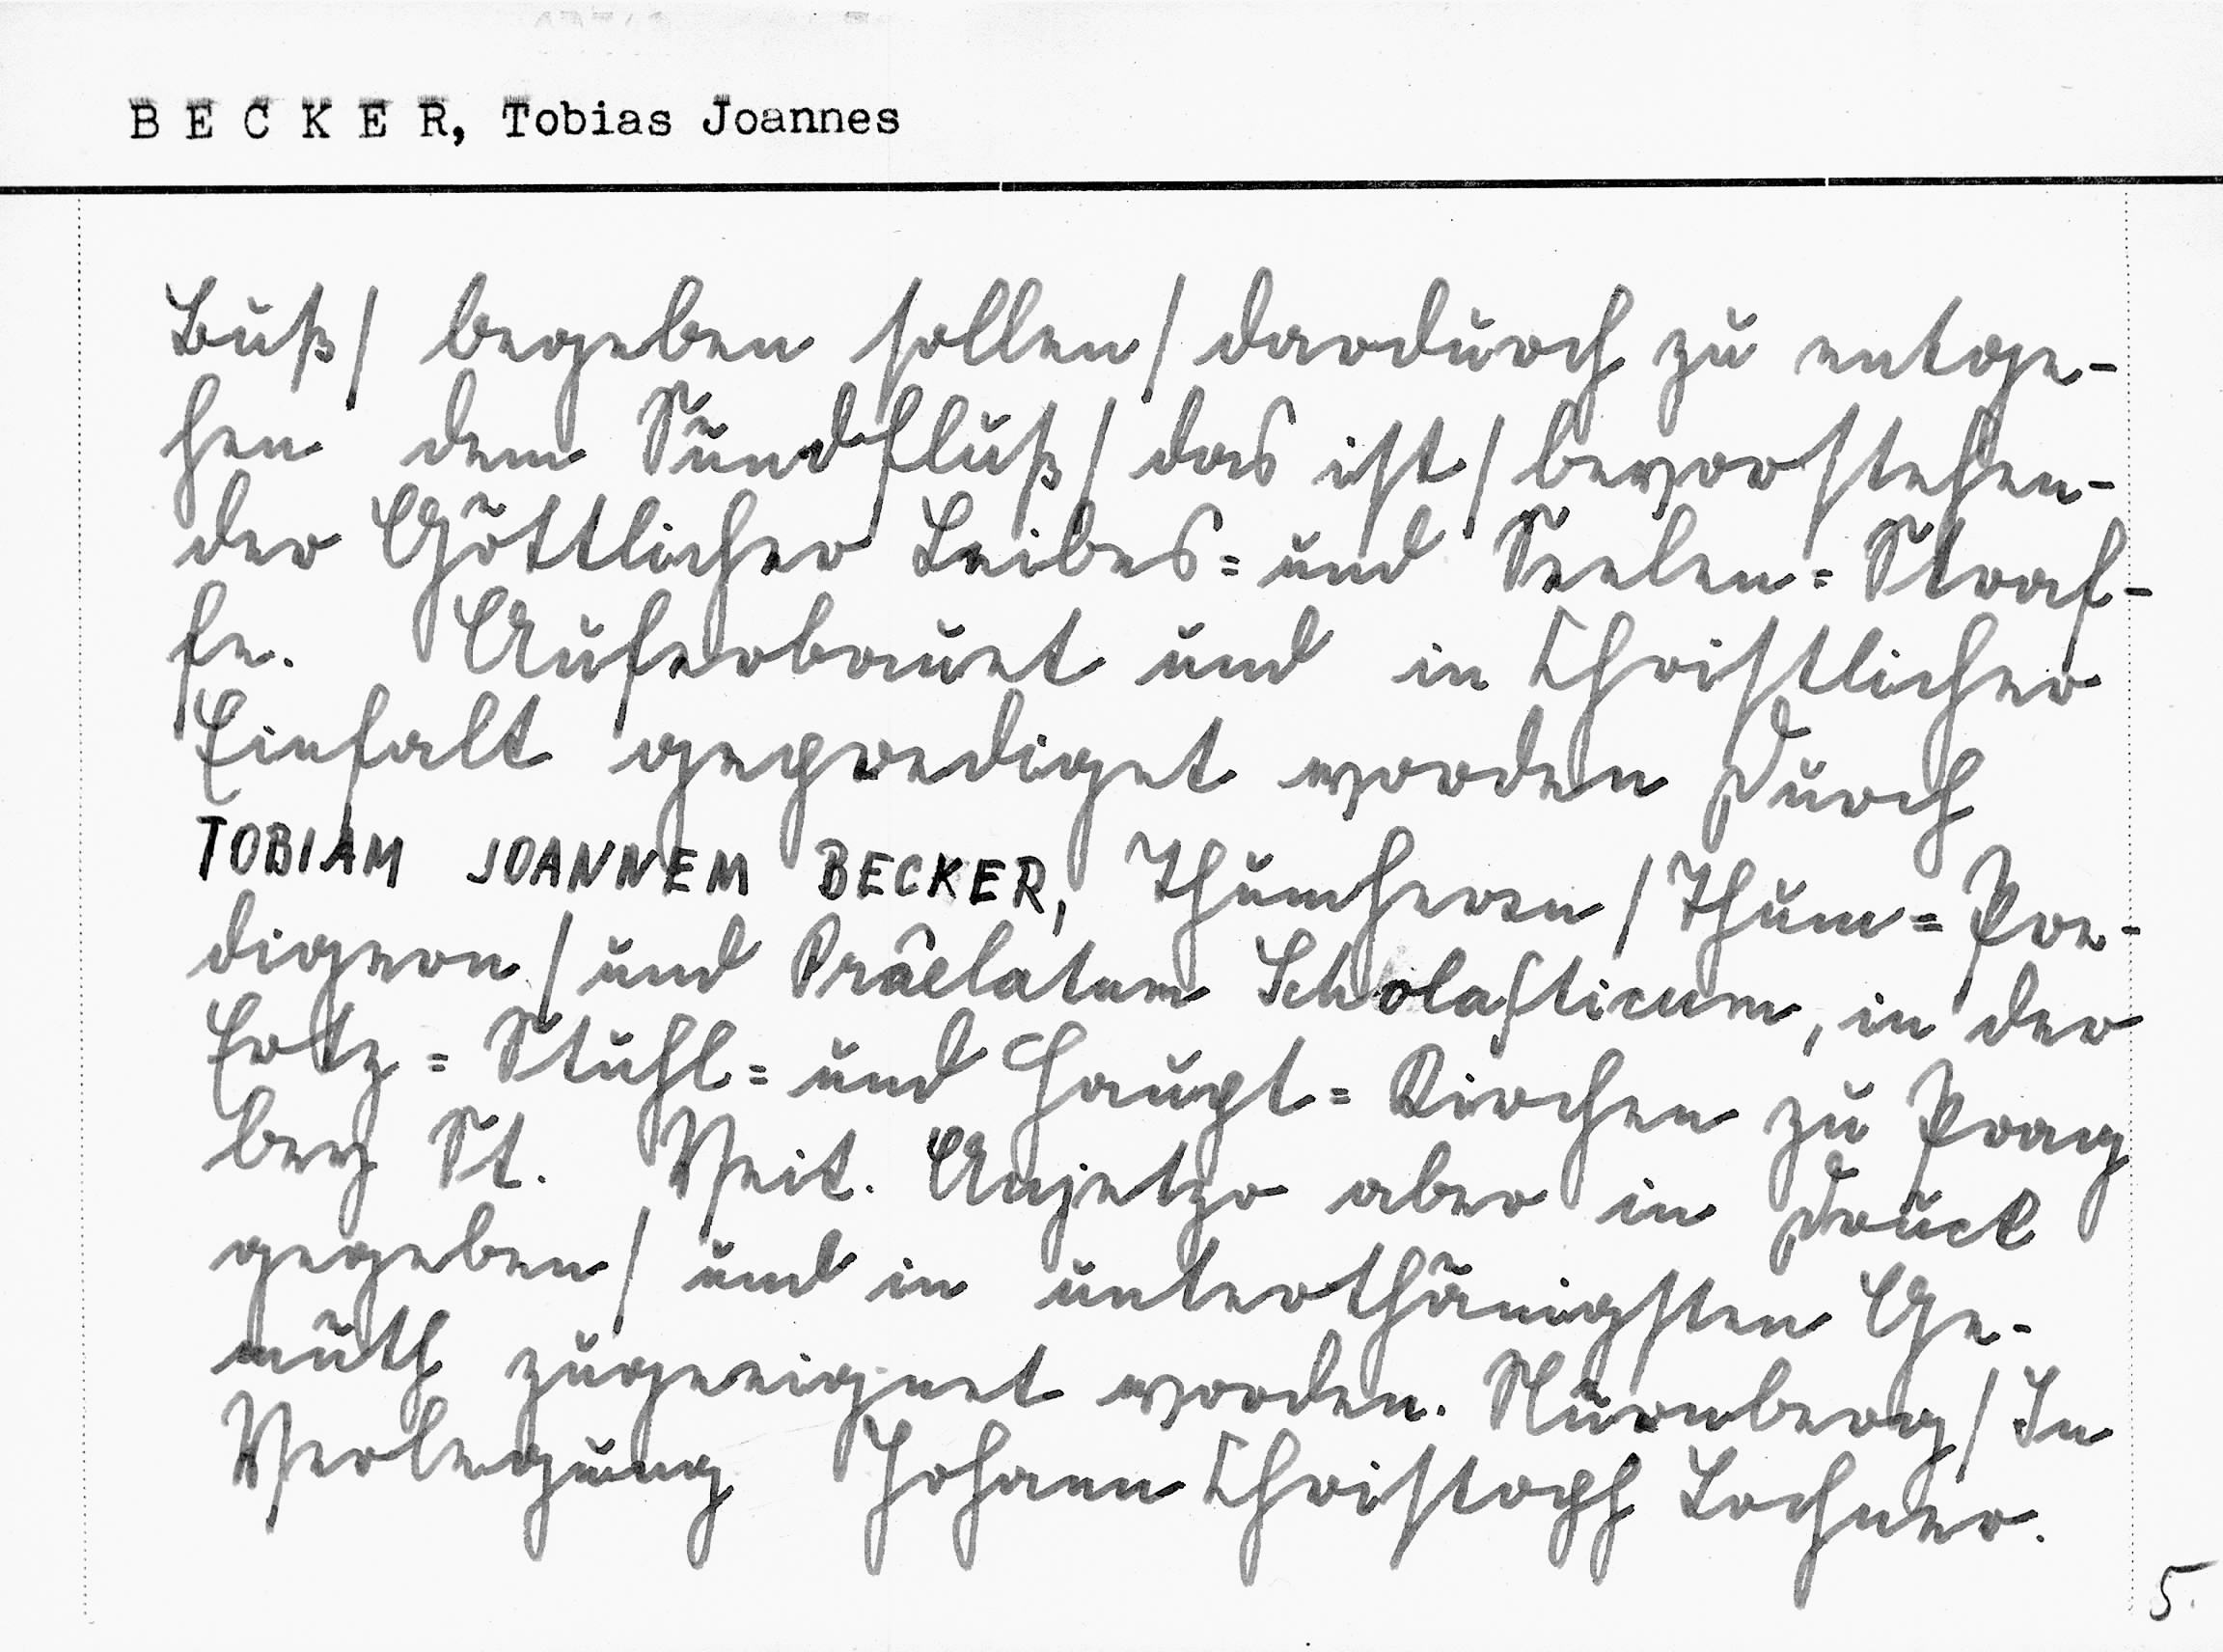 BECKER, Tobias Joannes
Buß/ begeben sollen/ dardurch zu entge-
hen dem Sündfluß/ das ist/ bevorstehen-
der Göttlicher Leibes= und Seelen= Straf-
fe. Auferbauet und in Christlicher
Einfalt geprediget worden Durch
TOBIAM JOANNEM BECKER, Thumherrn/ Thum= Pre-
digern/ und Praelatum Scholasticum, in der
Ertz= Stuhl= und Haupt= Kirchen zu Prag
bey St. Veit. Anjetzo aber in Druck
gegeben/ und in unterthänigsten Ge-
müth zugeeignet worden. Nürnberg/ In
Verlegung Johann Christoph Lochner.
5.